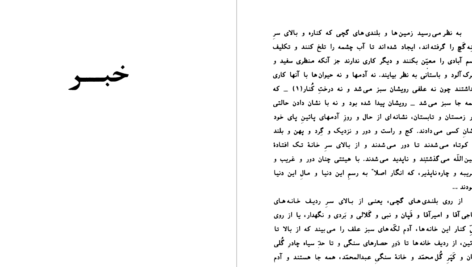 خبر
به نظر می‌رسید زمین‌ها و بلندی‌های گچی که کناره و بالای سرِ
گچ را گرفته‌اند، ایجاد شده‌اند تا آب چشمه را تلخ کنند و تکلیف
سم آبادی را معین بکنند و دیگر کاری ندارند جز آنکه منظری سفید و
رک‌آلود و باستانی به نظر بیایند. نه آدمها و نه حیوان‌ها با آنها کاری
داشتند چون نه علفی رویشان سبز می‌شد و نه درختِ کُنار(۱) ــ که
همه جا سبز می‌شد ــ رویشان پیدا شده بود و نه با نشان دادن حالتی
زمستان و تابستان، نشانه‌ای از حال و روز آدمهای پائین پای خود
شان کسی می‌دادند. کج و راست و دور و نزدیک و گِرد و پهن و بلند
کوتاه می‌شدند تا دور می‌شدند و از بالای سرِ خانهٔ تک افتادهٔ
اللّه می‌گذشتند و ناپدید می‌شدند. با هیئتی چنان دور و غریب و
ریبه و چاره‌ناپذیر، که انگار اصلاً به رسم این دنیا و مال این دنیا
بودند ...
از روی بلندی‌های گچی، یعنی از بالای سرِ ردیف خانه‌های
جی آقا و امیرآقا و قَپان و نبی و گلالی و بَردی و نگهدار، یا از روی
کنار این خانه‌ها، آدم لکّه‌های سبز علف را می‌بیند که از بالا تا
ئین، از ردیف خانه‌ها تا دَورِ حصارهای سنگی و تا حدّ سیاه چادر گُلی
و کَپَر گُل‌محمّد و خانهٔ سنگی عبدالمحمّد، همه جا هستند و آدم